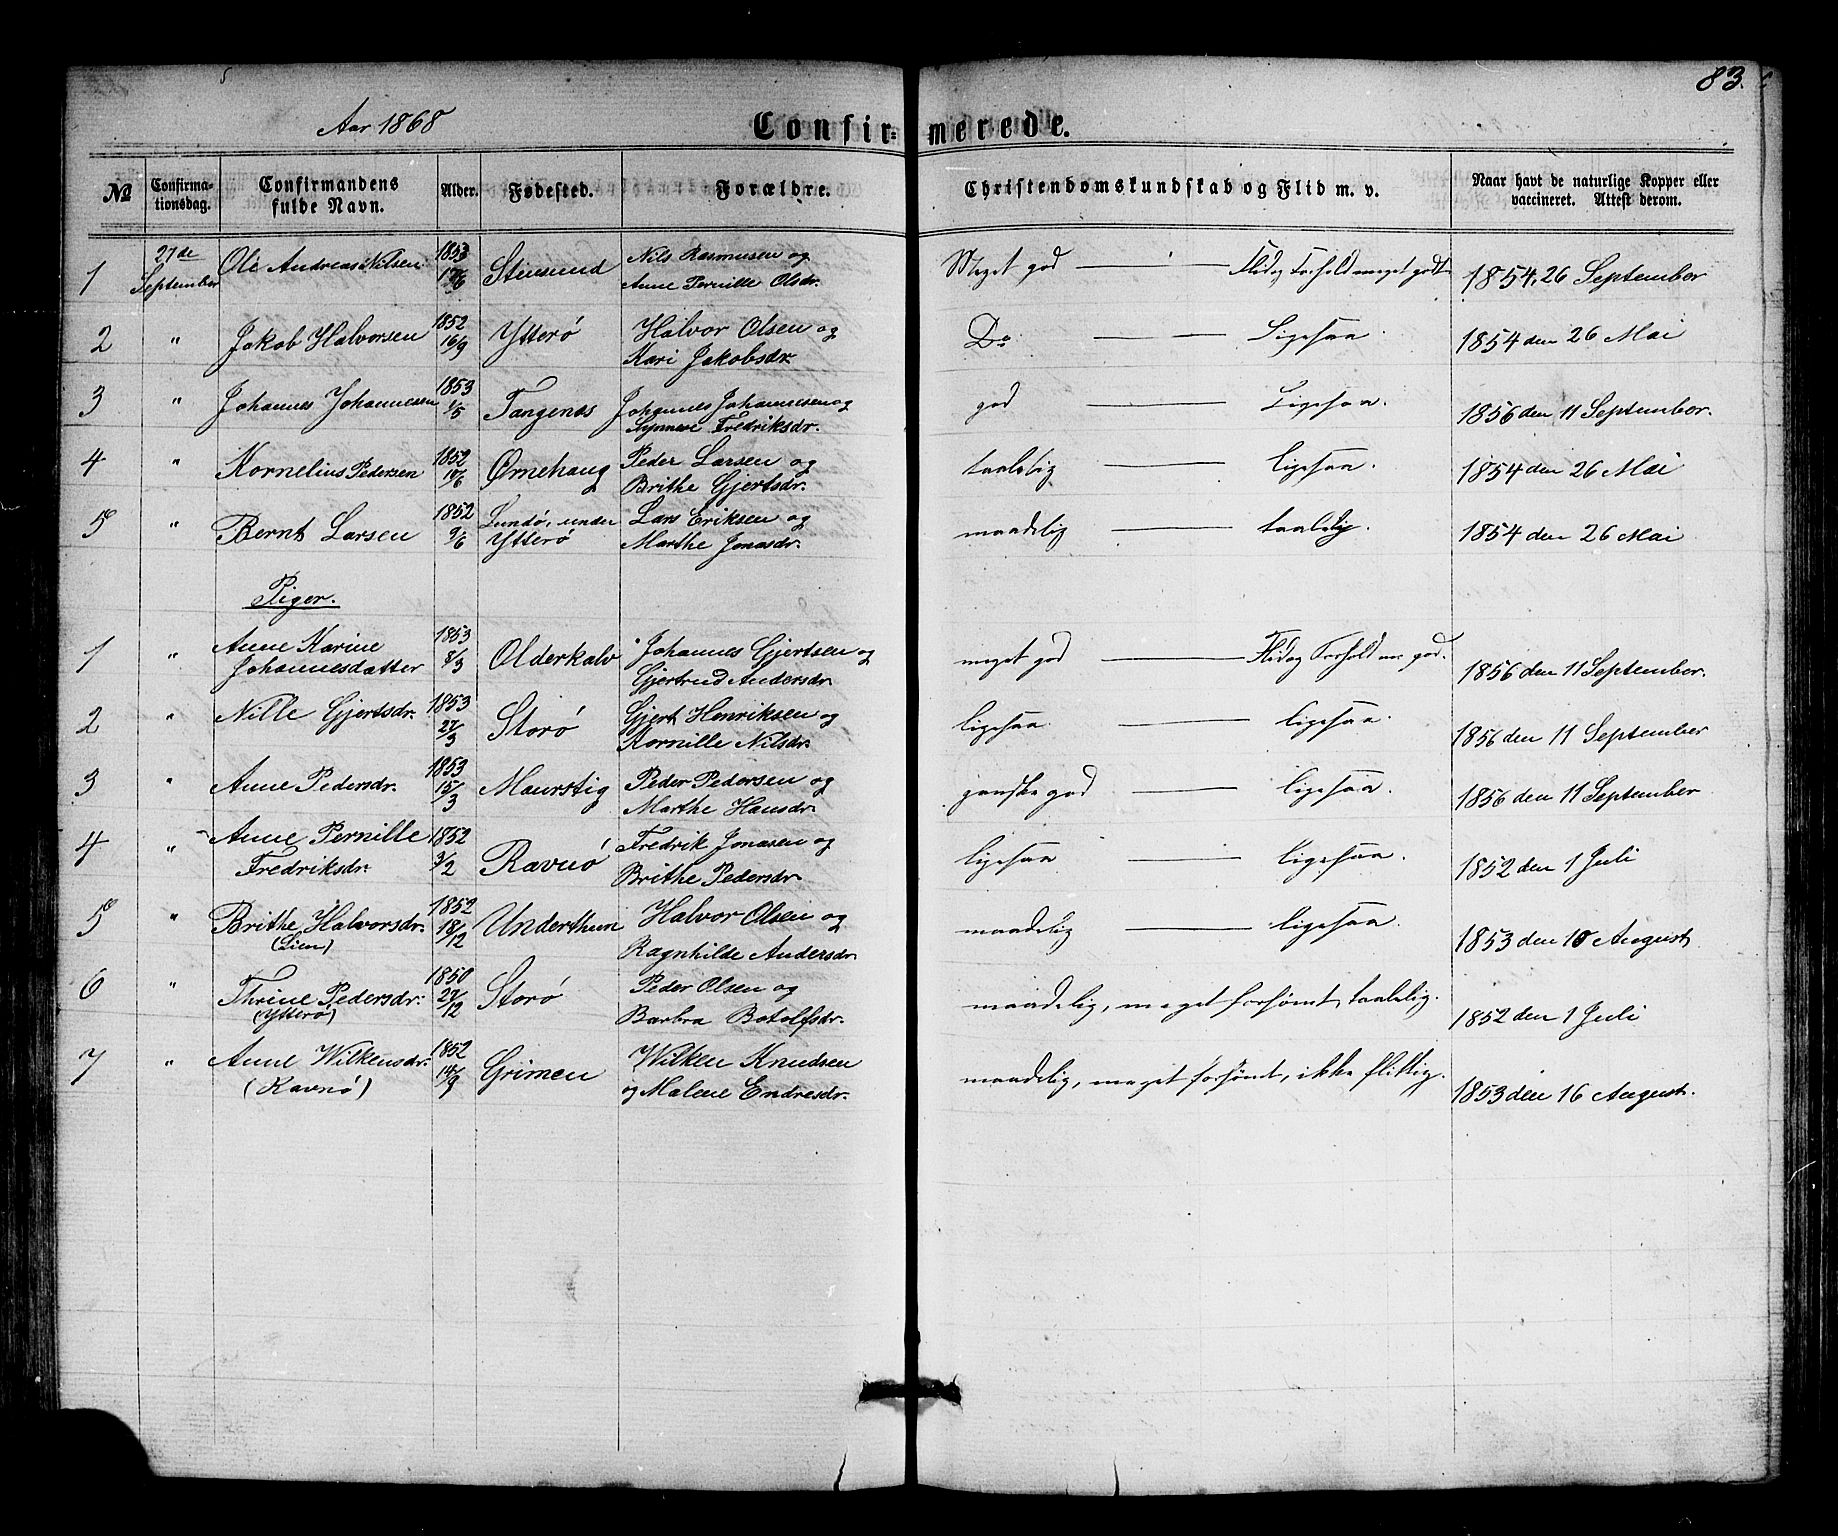 83.
Aar 1868
Confirmerede.
№ Confirmationsdag. Confirmandens fulde Navn. Alder. Fødested. Forældre. Christendomskundskab og Flid m. v. Naar havt de naturlige Kopper eller vaccineret. Attest derom.
1 27de September Ole Andreas Nilsen 1853 17/6 Steinsund Nils Rasmusen og Anne Pernille Olsdr. Meget god — Flid og Forhold meget godt 1854, 26 September
2 " Jakob Halvorsen 1852 16/9 Ytterø Halvor Olsen og Kari Jakobsdr. Do — Ligesaa. 1854 den 26 Mai
3 " Johannes Johannesen 1853 1/5 Tangenes Johannes Johannesen og Synneve Fredriksdr. god — Ligesaa. 1856 den 11 September.
4 " Kornelius Pedersen 1852 Ørnehaug Peder Larsen og Brithe Gjertsdr. taalelig — ligesaa. 1854 den 26 Mai
5 " Bernt Larsen 1852 9/6 Lundø, under Ytterø Lars Eriksen og Marthe Jonasdr. maadelig — taalelig. 1854 den 26 Mai
Piger.
1 " Anne Karine Johannesdatter 1853 8/3 Olderkalv Johannes Gjertsen og Gjertrud Andersdr. meget god — Flid og Forhold me. god. 1856 den 11 September.
2 " Nille Gjertsdr. 1853 27/3 Storø Gjert Henriksen og Kornille Nilsdr. ligesaa — ligesaa. 1856 den 11 September
3 " Anne Pedersdr. 1853 15/3 Maurstig Peder Pedersen og Marthe Hansdr. ganske god — ligesaa. 1856 den 11 September
4 " Anne Pernille Fredriksdr. 1852 3/2 Ravnø Fredrik Jonasen og Brithe Pedersdr. ligesaa — ligesaa. 1852 den 1 Juli
5 " Brithe Halvorsdr. (Lien) 1852 18/12 Underthun Halvor Olsen og Ragnhilde Andersdr. maadelig — ligesaa. 1853 den 10 August
6 " Thrine Pedersdr. (Ytterø) 1850 27/12 Storø Peder Olsen og Barbra Botolfsdr. maadelig, meget forsømt, taalelig. 1852 den 1 Juli
7 " Anne Wilkensdr. (Ravnø) 1852 14/9 Grimen Wilken Knudsen og Malene Endresdr. maadelig, meget forsømt, ikke flittig. 1853 den 16 August.